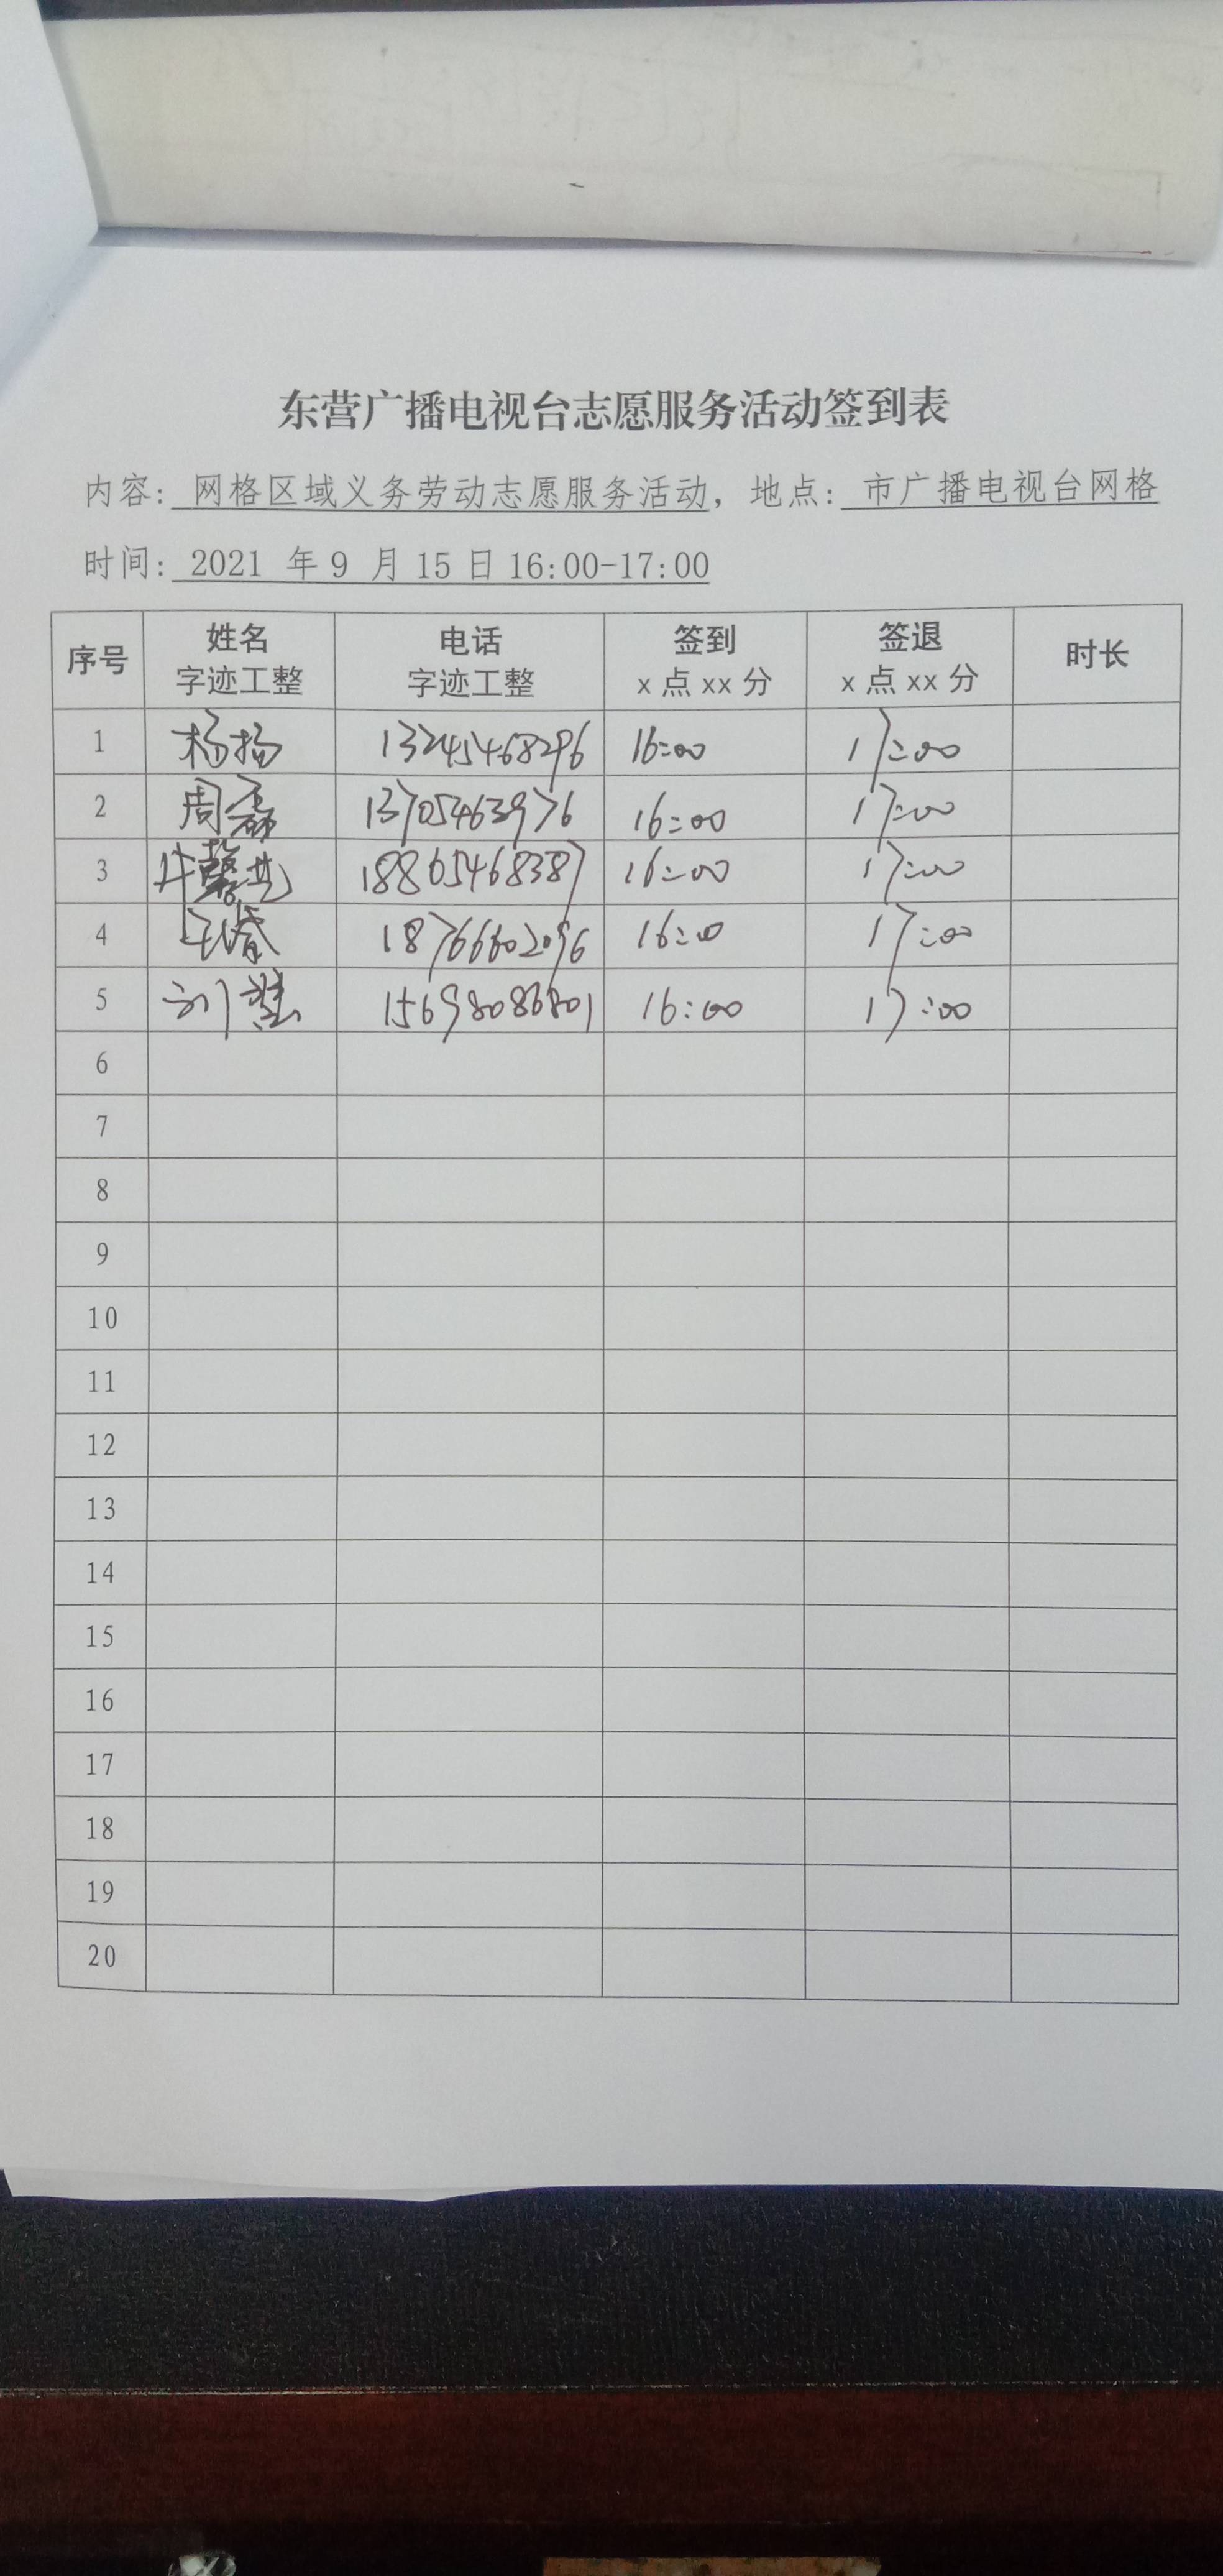 东营广播电视台志愿服务活动签到表
内容: 网格区域义务劳动志愿服务活动, 地点: 市广播电视台网格
时间: 2021 年 9 月 15 日 16:00-17:00
序号 姓名 字迹工整 电话 字迹工整 签到 x 点 xx 分 签退 x 点 xx 分 时长
1 杨扬 13245468296 16:00 17:00
2 周磊 13705463976 16:00 17:00
3 18865468387 16:00 17:00
4 18766602096 16:00 17:00
5 刘慧 15698086801 16:00 17:00
6
7
8
9
10
11
12
13
14
15
16
17
18
19
20